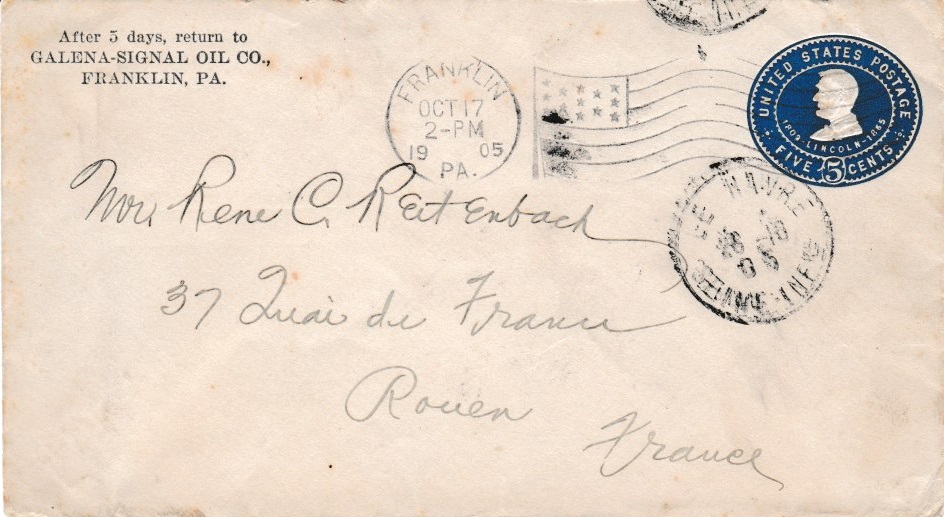 After 5 days, return to
GALENA-SIGNAL OIL CO.,
FRANKLIN, PA.
FRANKLIN
OCT 17
2-PM
19 05
PA.
UNITED STATES POSTAGE
1809-LINCOLN-1865
FIVE 5 CENTS
HAVRE
SEINE-INFRE
Mr. Rene C. Reitenbach
37 Quai de France
Rouen
France